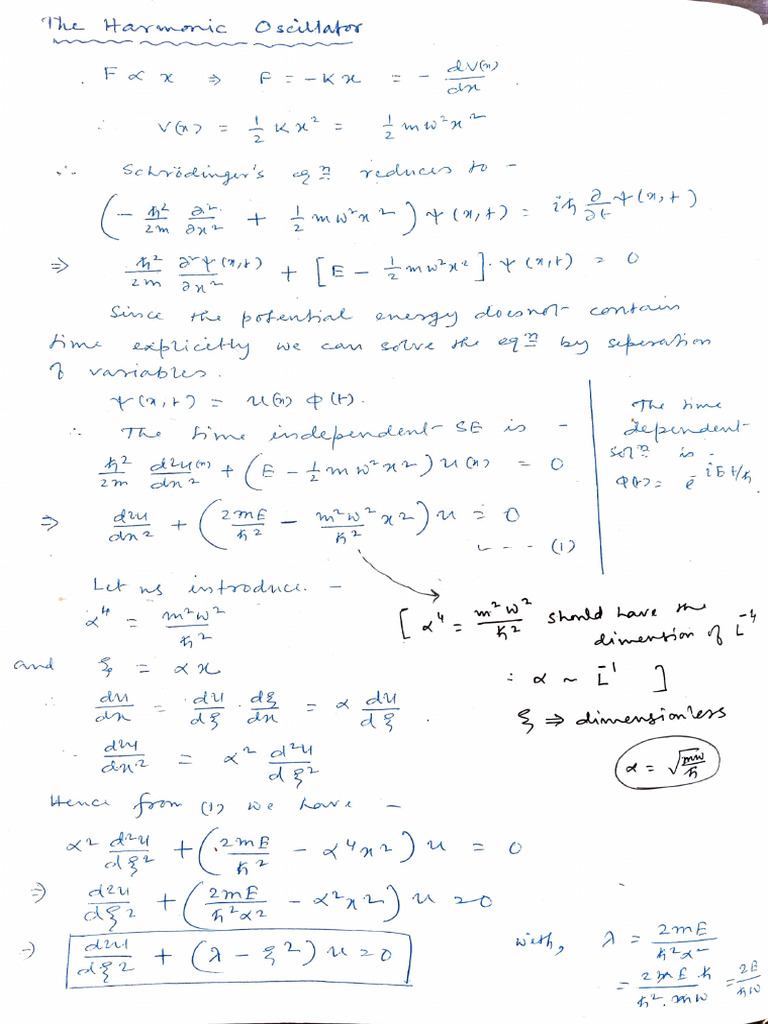 The Harmonic Oscillator
F ∝ x ⇒ F = -Kx = - dV(x)/dx
∴ V(x) = 1/2 Kx² = 1/2 mω²x²
∴ Schrödinger's eqⁿ reduces to -
(- ħ²/2m ∂²/∂x² + 1/2 mω²x²) ψ(x,t) = iħ ∂/∂t ψ(x,t)
⇒ ħ²/2m ∂²ψ(x,t)/∂x² + [E - 1/2 mω²x²]·ψ(x,t) = 0
Since the potential energy doesnot contain
time explicitly we can solve the eqⁿ by seperation
of variables.
ψ(x,t) = u(x) φ(t).
∴ The time independent SE is -
ħ²/2m d²u(x)/dx² + (E - 1/2 mω²x²) u(x) = 0
⇒ d²u/dx² + (2mE/ħ² - m²ω²/ħ² x²) u = 0
--- (1)
The time
dependent
solⁿ is -
φ(t) = e^(-iEt/ħ)
Let us introduce. -
α⁴ = m²ω²/ħ²
and ξ = αx
∴ du/dx = du/dξ · dξ/dx = α du/dξ.
∴ d²u/dx² = α² d²u/dξ²
[α⁴ = m²ω²/ħ² should have the
dimension of L⁻⁴
∴ α ~ L⁻¹ ]
ξ ⇒ dimensionless
α = √(mω/ħ)
Hence from (1) we have -
α² d²u/dξ² + (2mE/ħ² - α⁴x²) u = 0
⇒ d²u/dξ² + (2mE/ħ²α² - α²x²) u = 0
⇒ d²u/dξ² + (λ - ξ²) u = 0
with, λ = 2mE/ħ²α²
= 2mE·ħ/ħ²·mω = 2E/ħω